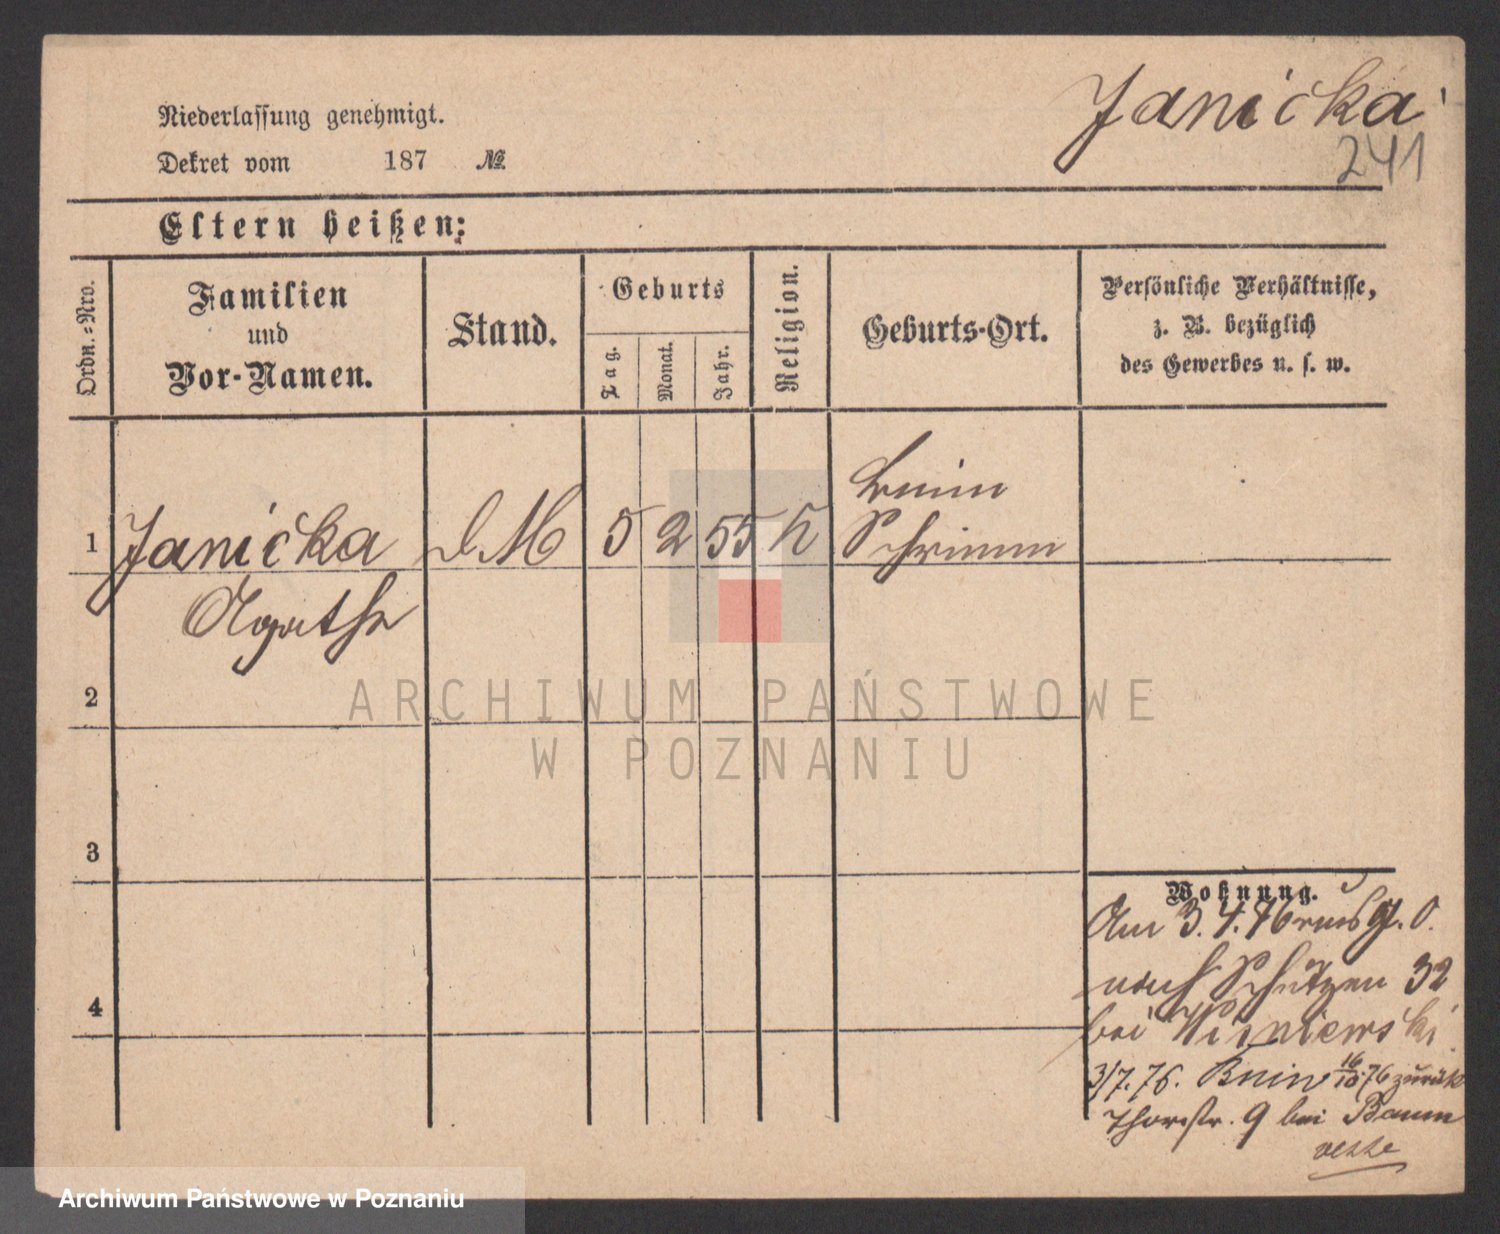 Janicka
241
Niederlassung genehmigt.
Dekret vom 187 №
Eltern heißen:
Ordn.=Nro.
Familien
und
Vor-Namen.
Stand.
Geburts
Tag.
Monat.
Jahr.
Religion.
Geburts-Ort.
Persönliche Verhältnisse,
z. B. bezüglich
des Gewerbes u. s. w.
1
Janicka
Agathe
d M
5
2
55
k
Bnin
Schrimm
2
3
4
Wohnung.
Am 3. 4. 76 aus O.
nach Schützen 32
bei Wisniewski
3/7. 76. Bnin 16/10.76 zurück
Thorstr. 9 bei Baum
ARCHIWUM PAŃSTWOWE
W POZNANIU
Archiwum Państwowe w Poznaniu